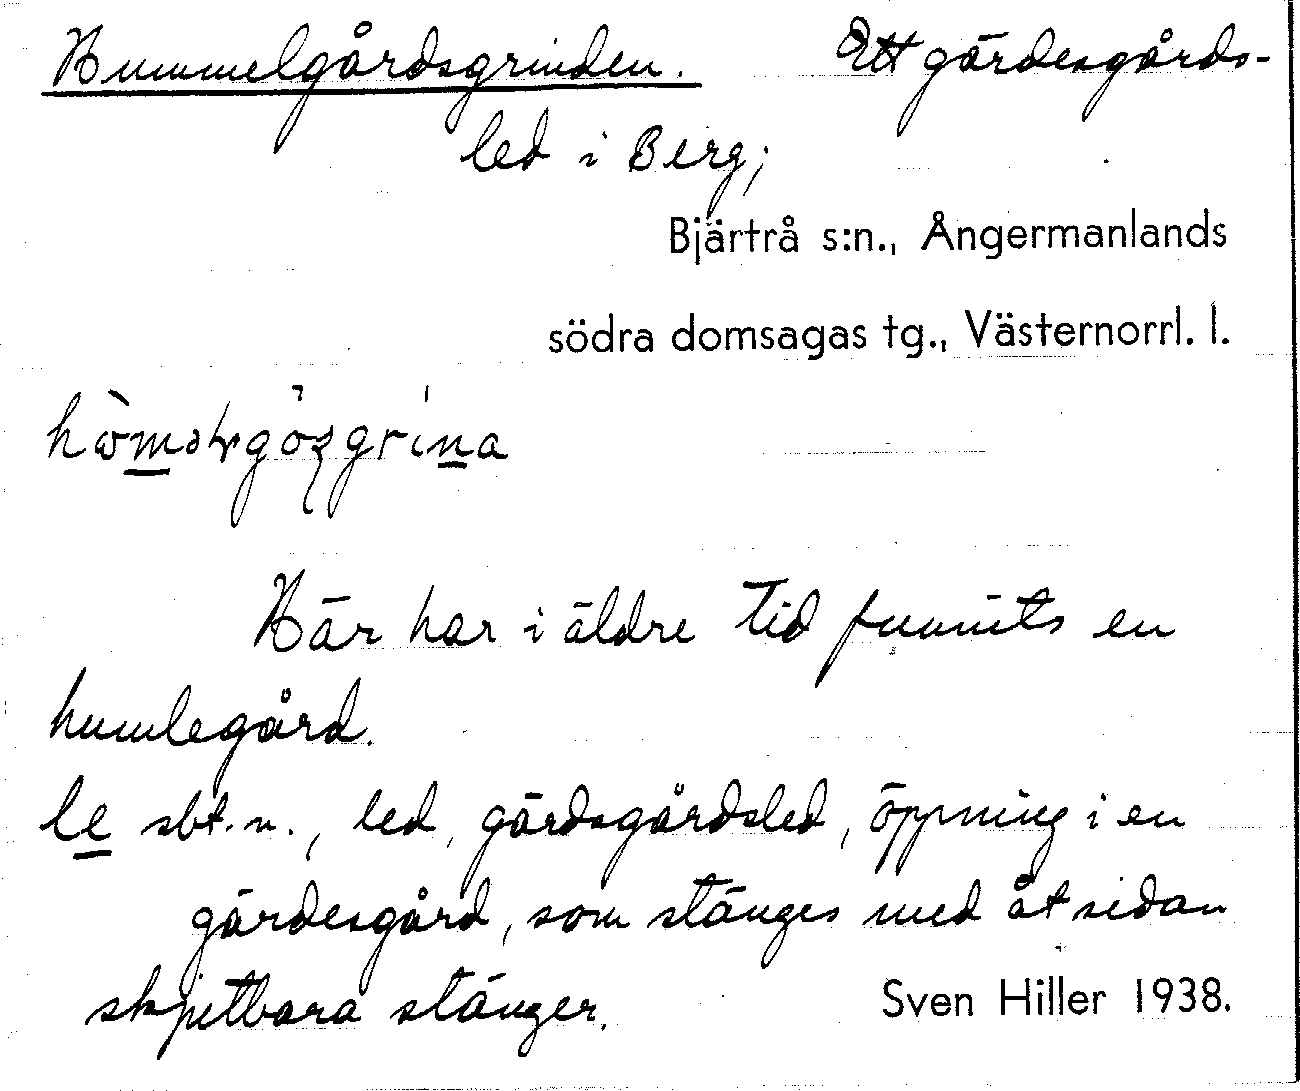 Hummelgårdsgrinden. Ett gärdesgårds-
led i Berg;
Bjärtrå s:n., Ångermanlands
södra domsagas tg., Västernorrl. l.
Här har i äldre tid funnits en
humlegård.
le sbt. n., led, gärdsgårdsled, öppning i en
gärdesgård, som stänges med åt sidan
skjutbara stänger.
Sven Hiller 1938.